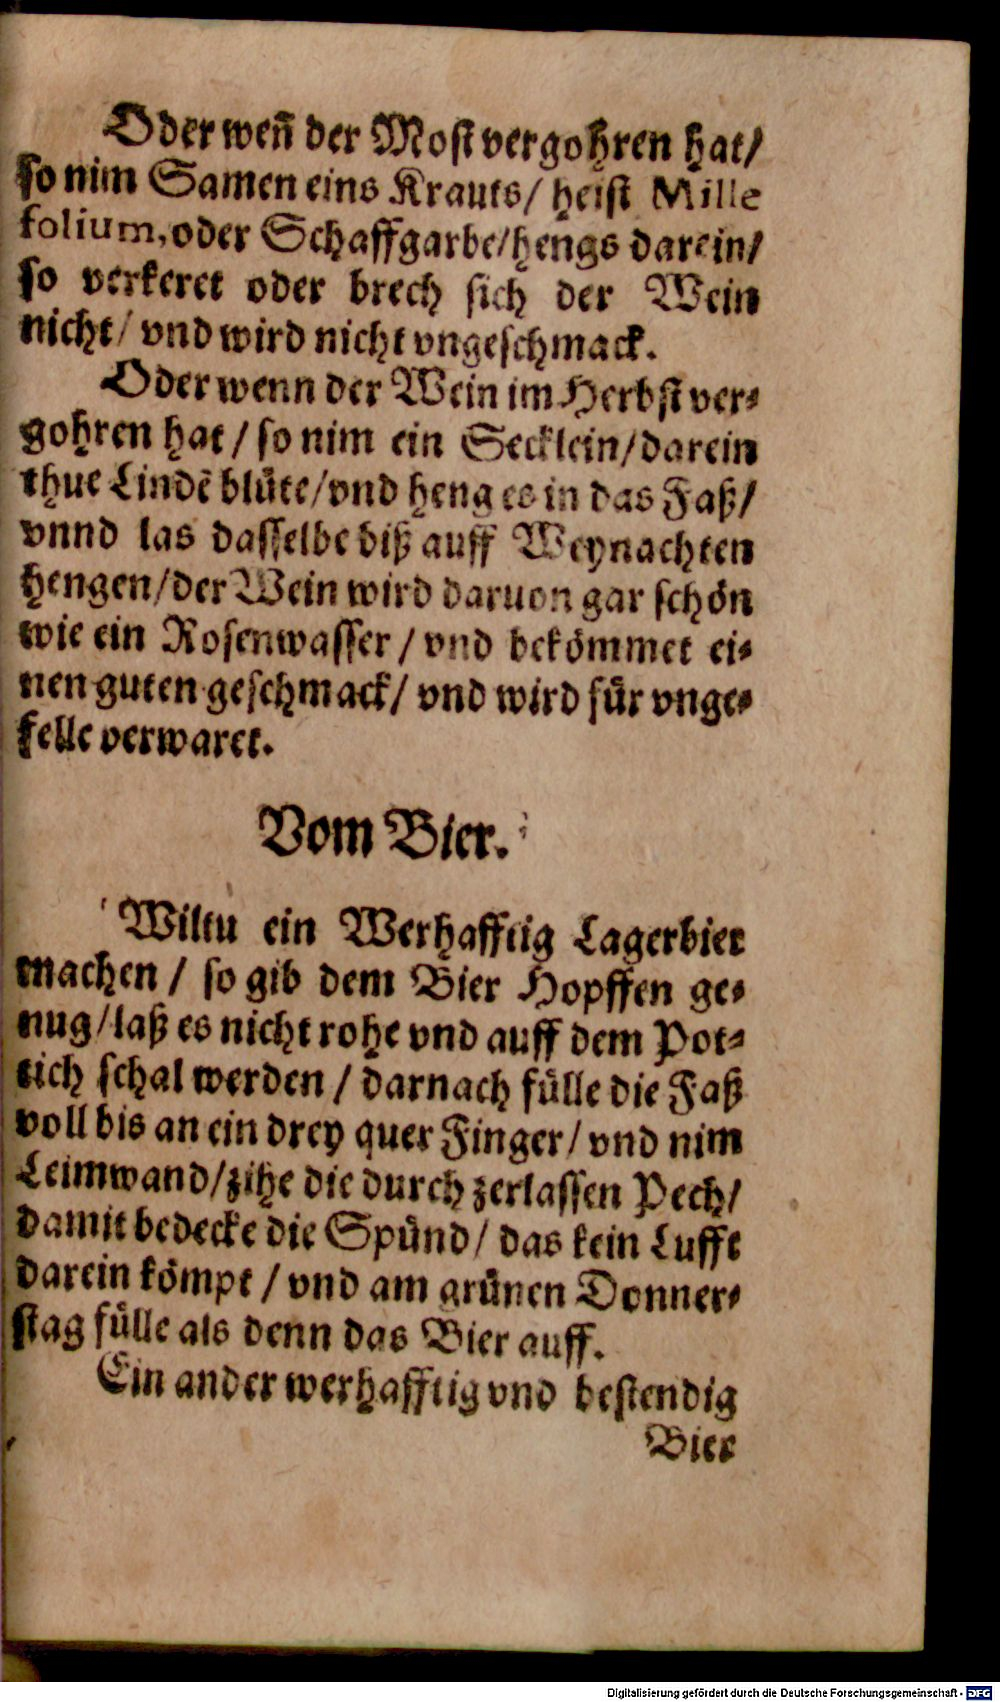 Oder wen̄ der Most vergohren hat/
so nim Samen eins Krauts/ heist Mille
folium, oder Schaffgarbe/ hengs darein/
so verkeret oder brech sich der Wein
nicht/ vnd wird nicht vngeschmack.
Oder wenn der Wein im Herbst ver-
gohren hat/ so nim ein Secklein/ darein
thue Lindē blüte/ vnd heng es in das Faß/
vnnd las dasselbe biß auff Weynachten
hengen/ der Wein wird daruon gar schön
wie ein Rosenwasser/ vnd bekömmet ei-
nen guten geschmack/ vnd wird für vnge-
felle verwaret.
Vom Bier.
Wiltu ein Werhafftig Lagerbier
machen/ so gib dem Bier Hopffen ge-
nug/ laß es nicht rohe vnd auff dem Pot-
tich schal werden/ darnach fülle die Faß
voll bis an ein drey quer Finger/ vnd nim
Leimwand/ zihe die durch zerlassen Pech/
damit bedecke die Spünd/ das kein Lufft
darein kömpt/ vnd am grünen Donner-
stag fülle als denn das Bier auff.
Ein ander werhafftig vnd bestendig
Bier
Digitalisierung gefördert durch die Deutsche Forschungsgemeinschaft - DFG